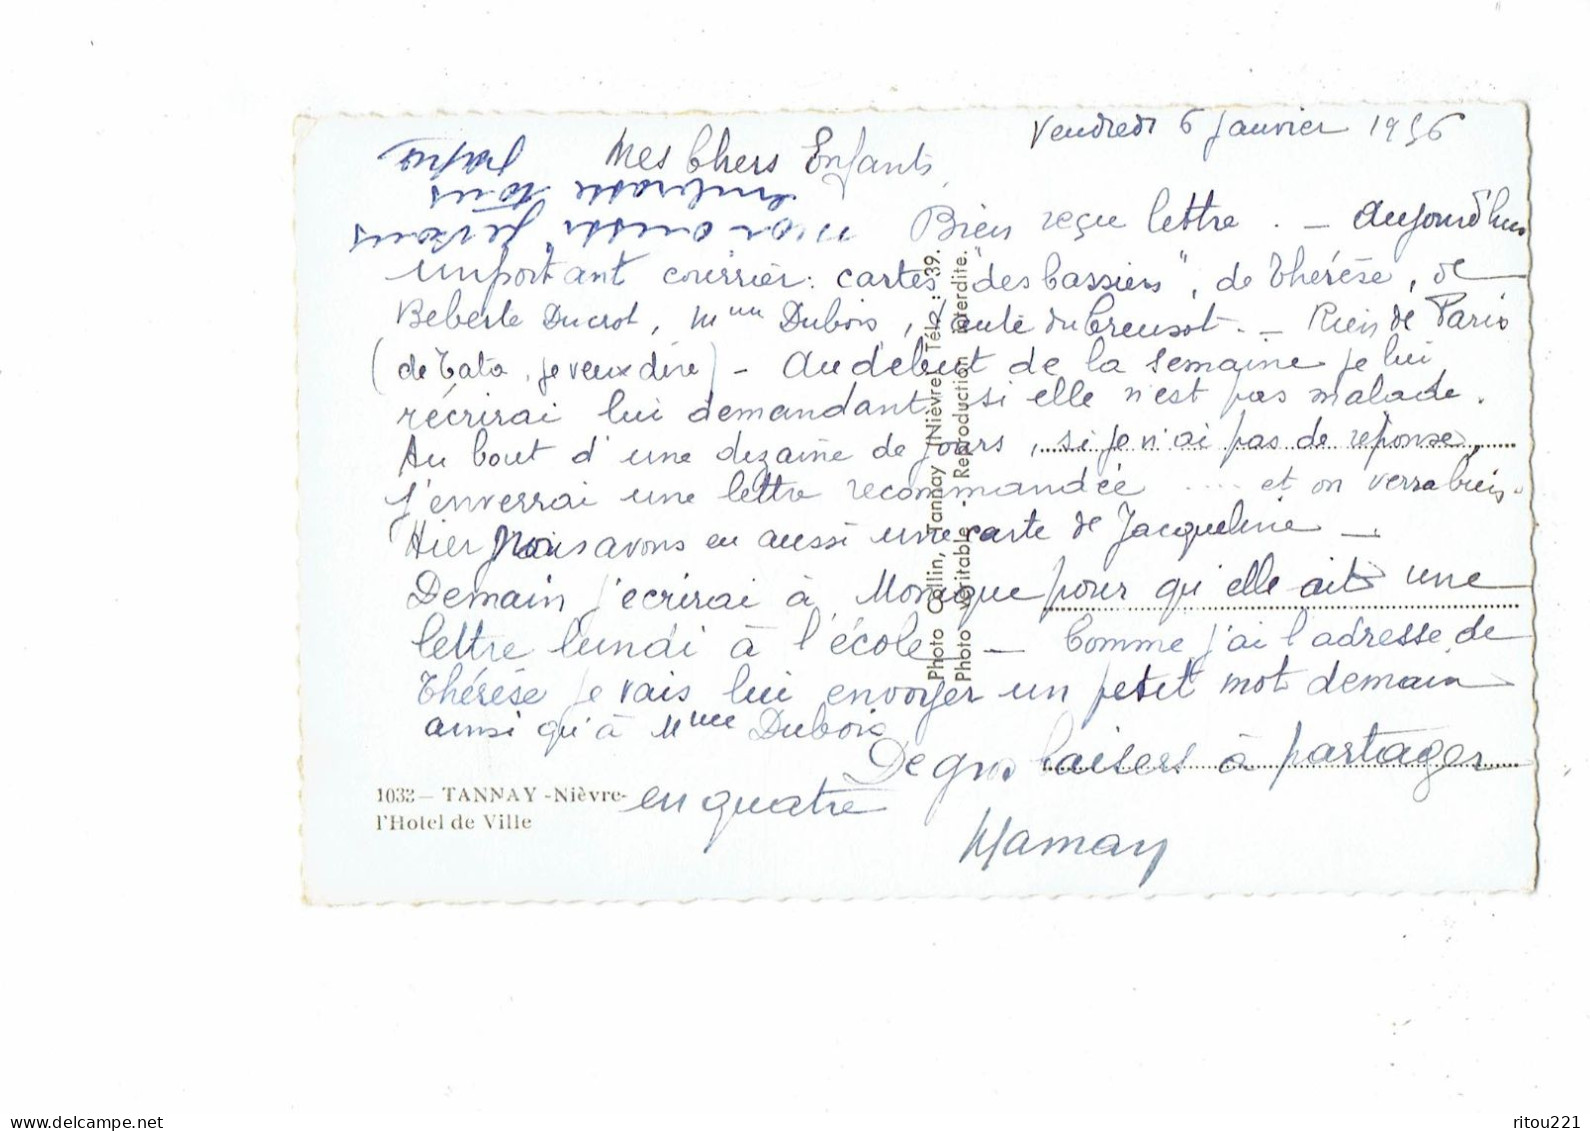 Vendredi 6 Janvier 1956
Mes Chers Enfants,
Bien reçu lettre. — Aujourd'hui
important courrier : cartes "des Cassiers", de Thérèse, de
Beberle Ducrot, Mme Dubois, du Creusot. — Rien de Paris
(de Tata, je veux dire) — Au début de la semaine je lui
récrirai lui demandant si elle n'est pas malade.
Au bout d'une dizaine de jours, si je n'ai pas de réponse,
j'enverrai une lettre recommandée .... et on verra bien.
Hier nous avons eu aussi une carte de Jacqueline —
Demain j'écrirai à Monique pour qu'elle ait une
lettre lundi à l'école — Comme j'ai l'adresse de
Thérèse je vais lui envoyer un petit mot demain
ainsi qu'à Mme Dubois
De gros baisers à partager
en quatre
Maman
moi aussi je vous
embrasse tous
papa
1032 — TANNAY -Nièvre-
l'Hotel de Ville
Photo Collin, Tannay (Nièvre) Tél. : 39.
Photo véritable - Reproduction interdite.
www.delcampe.net
ritou221